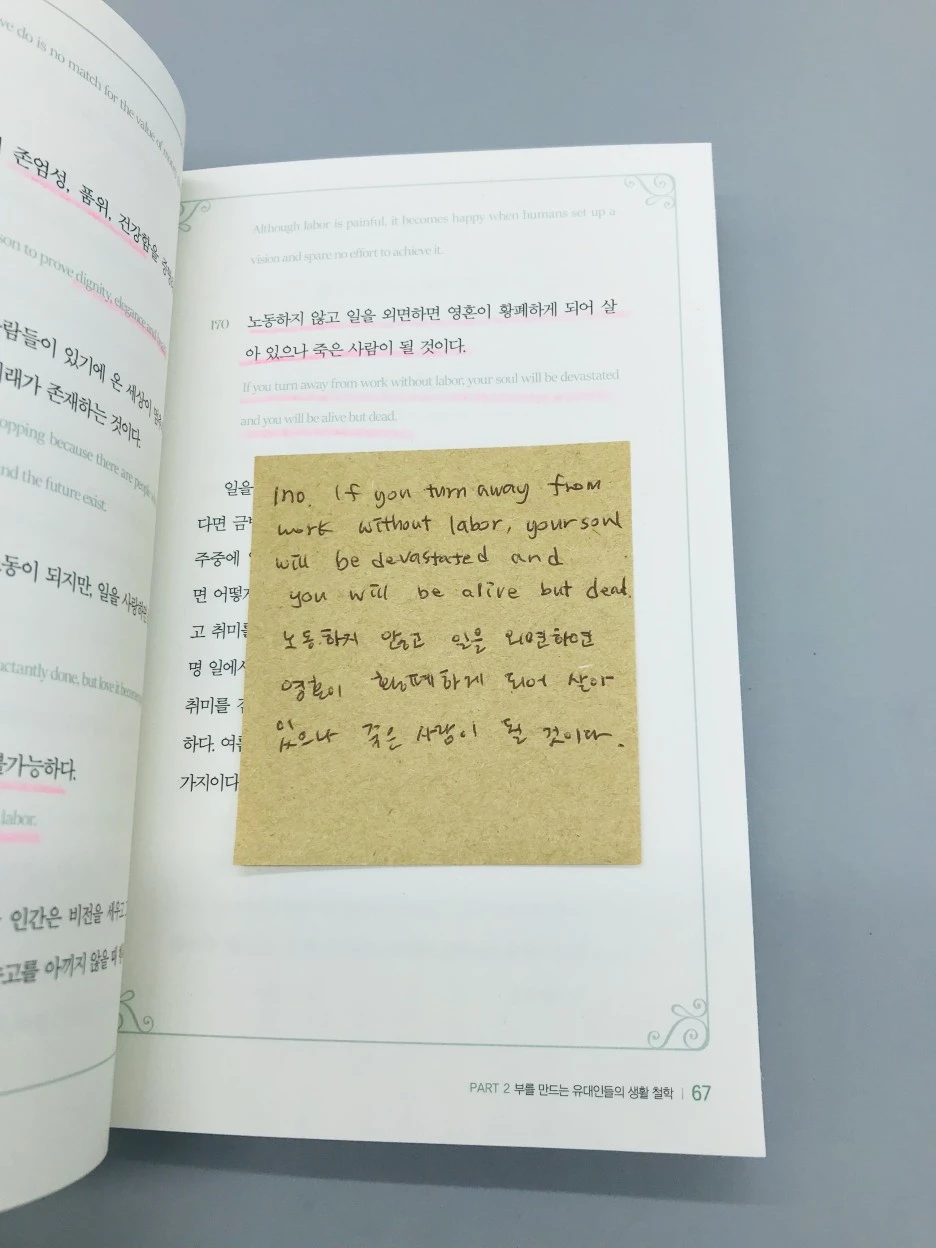 we do is no match for the value of
존엄성, 품위, 건강함을
son to prove dignity, elegance and
사람들이 있기에 온 세상이
미래가 존재하는 것이다.
opping because there are people
and the future exist.
노동이 되지만, 일을 사랑하면
uctantly done, but love it becomes
불가능하다.
labor.
인간은 비전을 세우고
수고를 아끼지 않을 때
Although labor is painful, it becomes happy when humans set up a
vision and spare no effort to achieve it.
170 노동하지 않고 일을 외면하면 영혼이 황폐하게 되어 살
아 있으나 죽은 사람이 될 것이다.
If you turn away from work without labor, your soul will be devastated
and you will be alive but dead.
일을
다면
주중에
면 어떻게
고 취미를
명 일에서
취미를
하다.
가지이다
170. If you turn away from
work without labor, your soul
will be devastated and
you will be alive but dead.
노동하지 않고 일을 외면하면
영혼이 황폐하게 되어 살아
있으나 죽은 사람이 될 것이다.
PART 2 부를 만드는 유대인들의 생활 철학 | 67